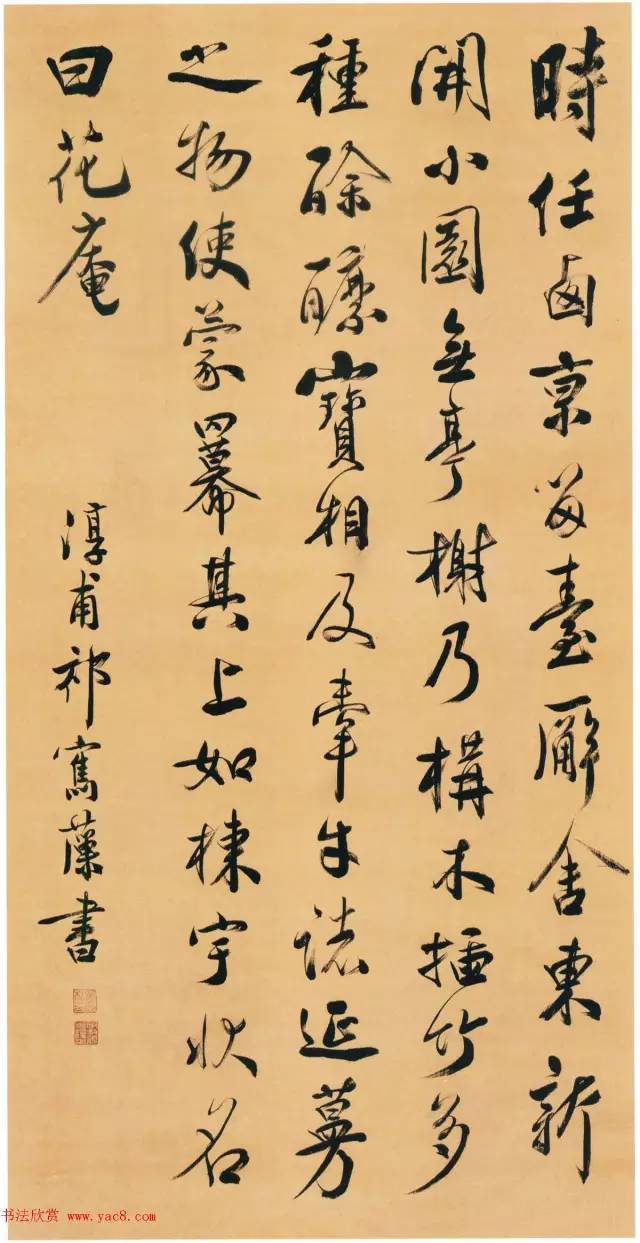 時任西京留臺廨舍東新
開小園無亭榭乃構木插竹多
種酴醿寶相及牽牛諸延蔓
之物使蒙冪其上如棟宇狀名
曰花庵
淳甫祁寯藻書
书法欣赏 www.yac8.com